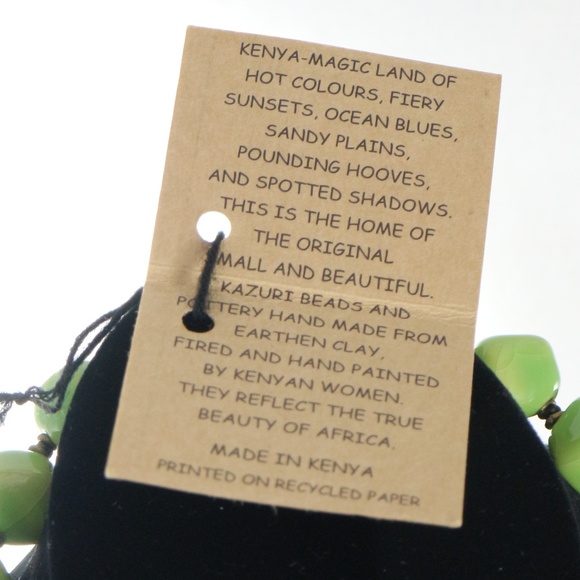 KENYA-MAGIC LAND OF
HOT COLOURS, FIERY
SUNSETS, OCEAN BLUES,
SANDY PLAINS,
POUNDING HOOVES,
AND SPOTTED SHADOWS.
THIS IS THE HOME OF
THE ORIGINAL
SMALL AND BEAUTIFUL.
KAZURI BEADS AND
POTTERY HAND MADE FROM
EARTHEN CLAY,
FIRED AND HAND PAINTED
BY KENYAN WOMEN.
THEY REFLECT THE TRUE
BEAUTY OF AFRICA.
MADE IN KENYA
PRINTED ON RECYCLED PAPER